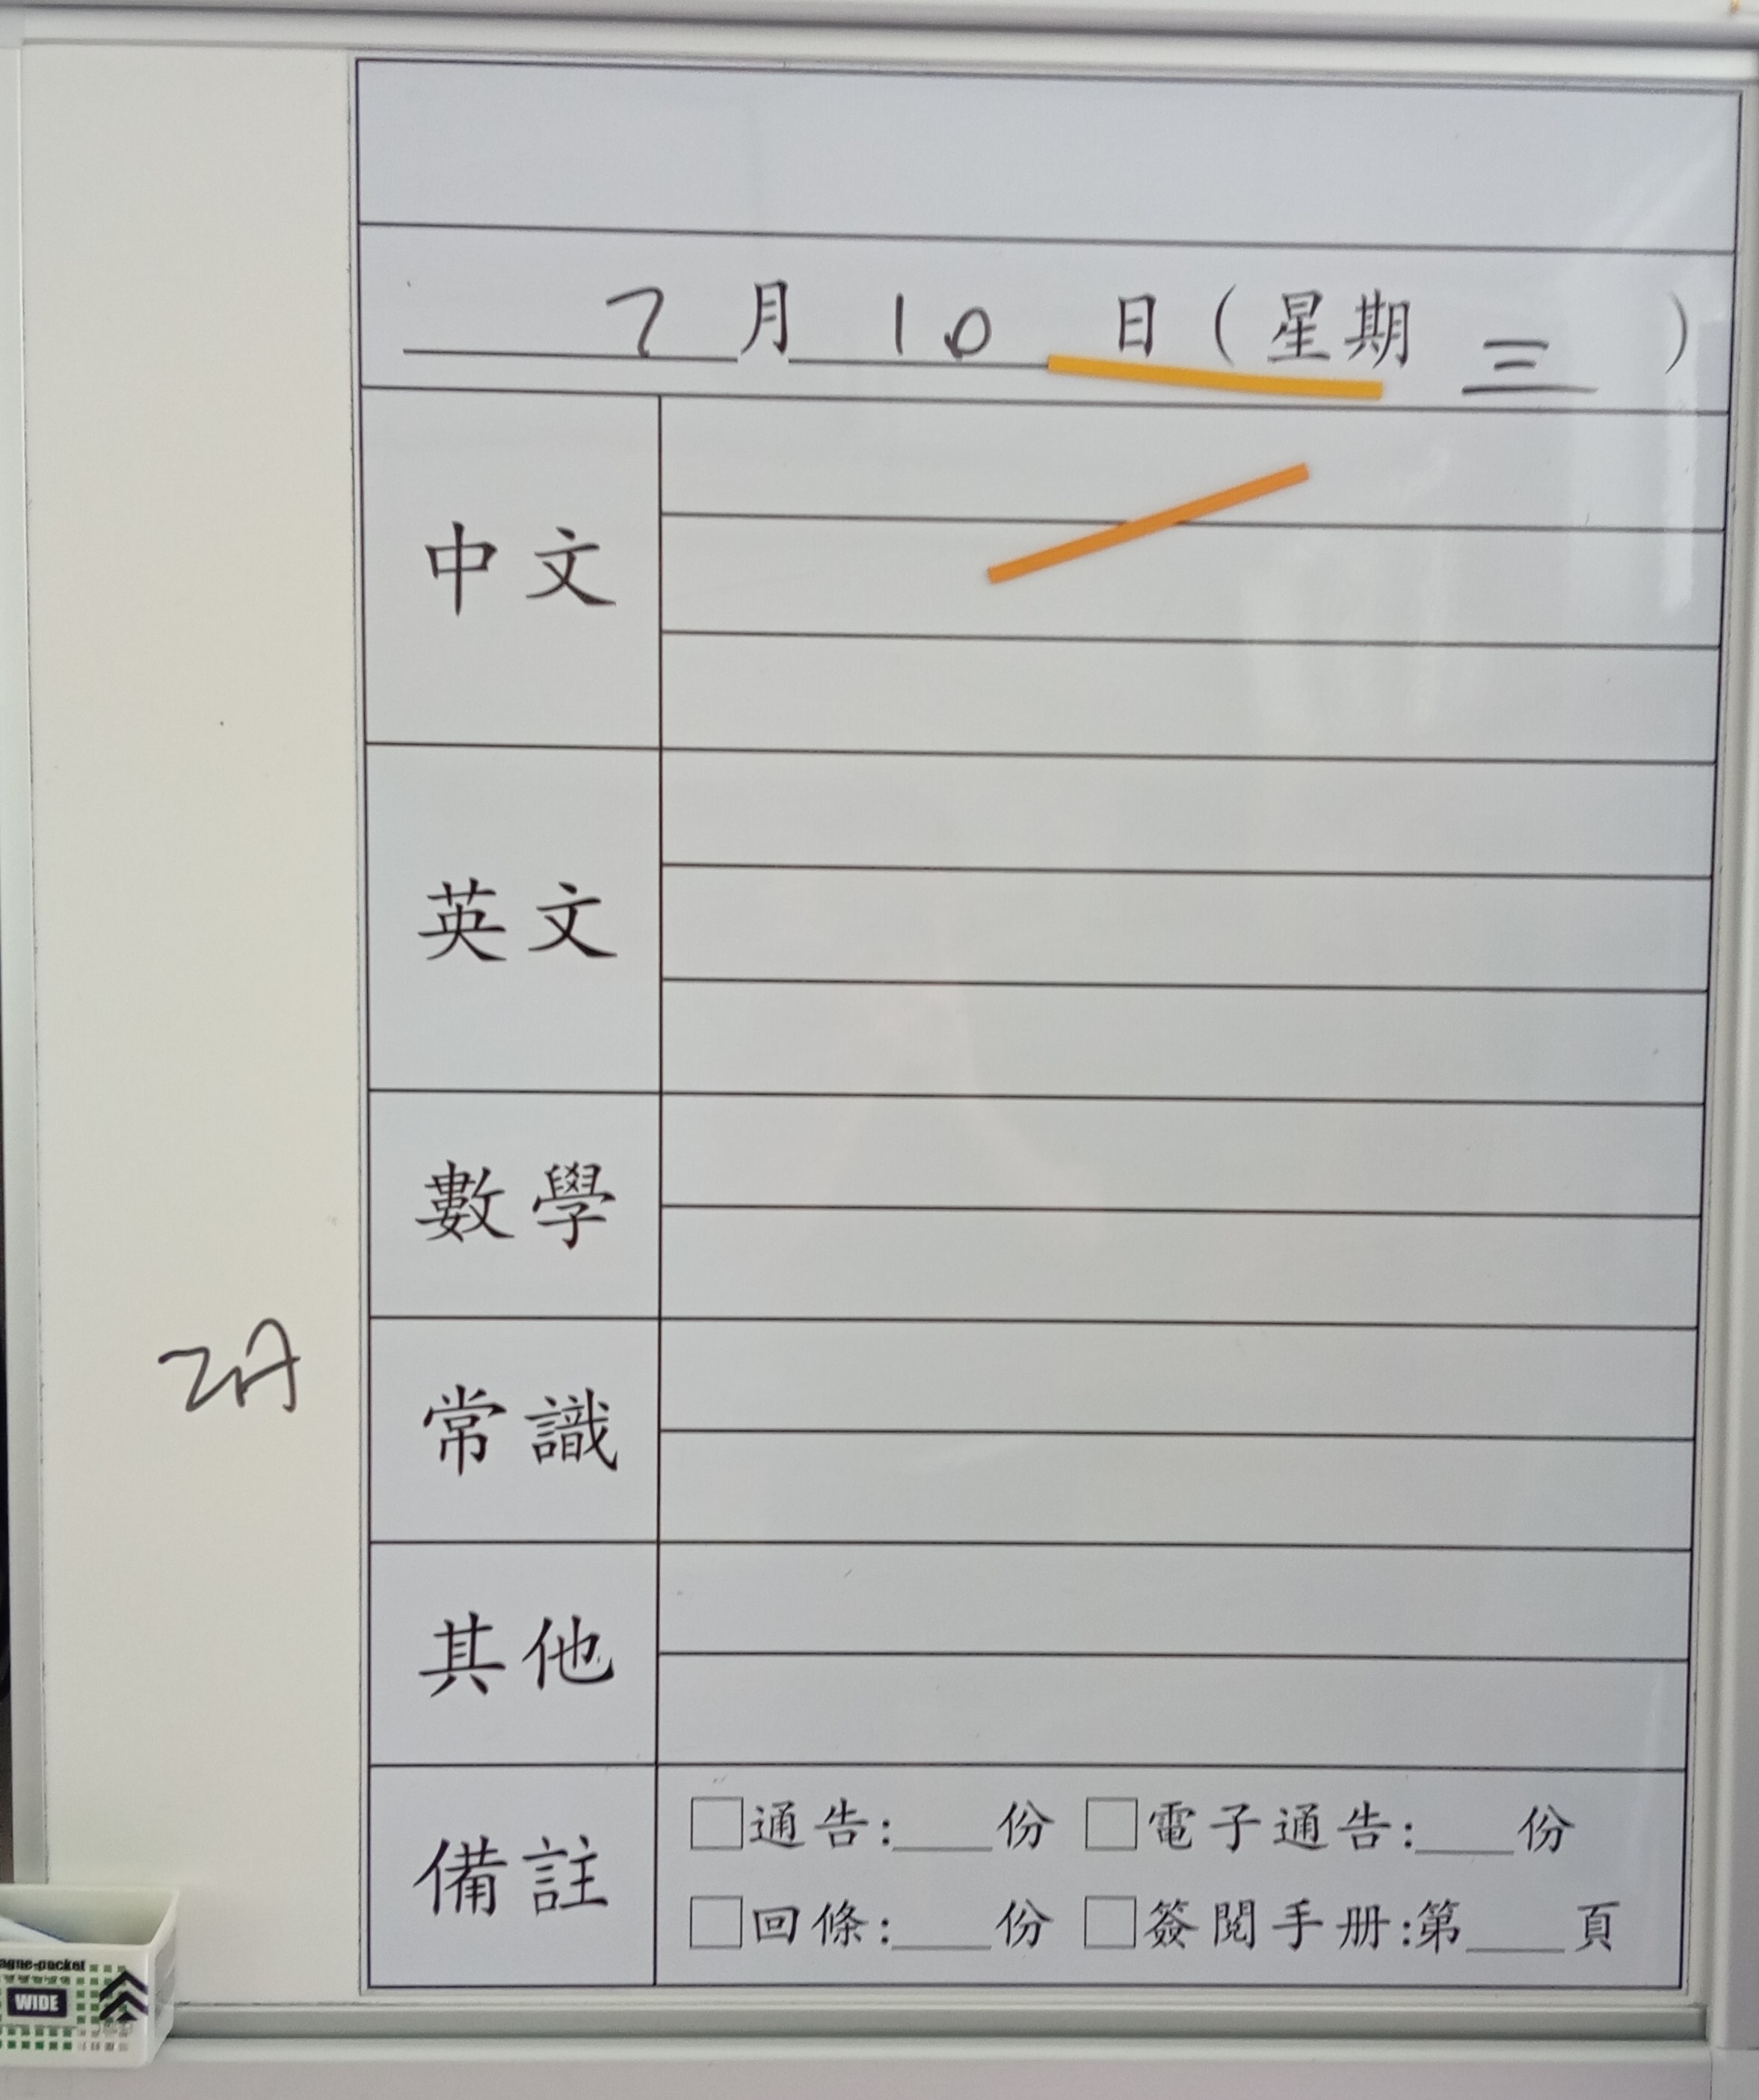 7月10日(星期三)
中文
英文
數學
2A
常識
其他
備註
□通告:___份 □電子通告:___份
□回條:___份 □簽閱手册:第___頁
WIDE